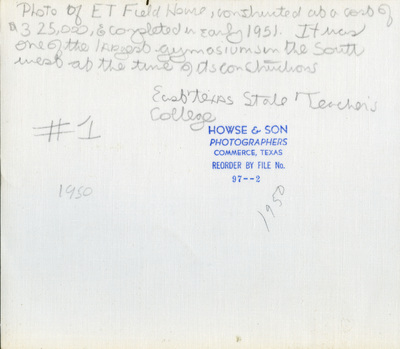 Photo of ET Field House, constructed at a cost of
$325,000, & completed in early 1951. It was
one of the largest gymnasiums in the South
west at the time of its constructions
East Texas State Teacher's
College
#1
HOWSE & SON
PHOTOGRAPHERS
COMMERCE, TEXAS
REORDER BY FILE No.
97--2
1950
1950